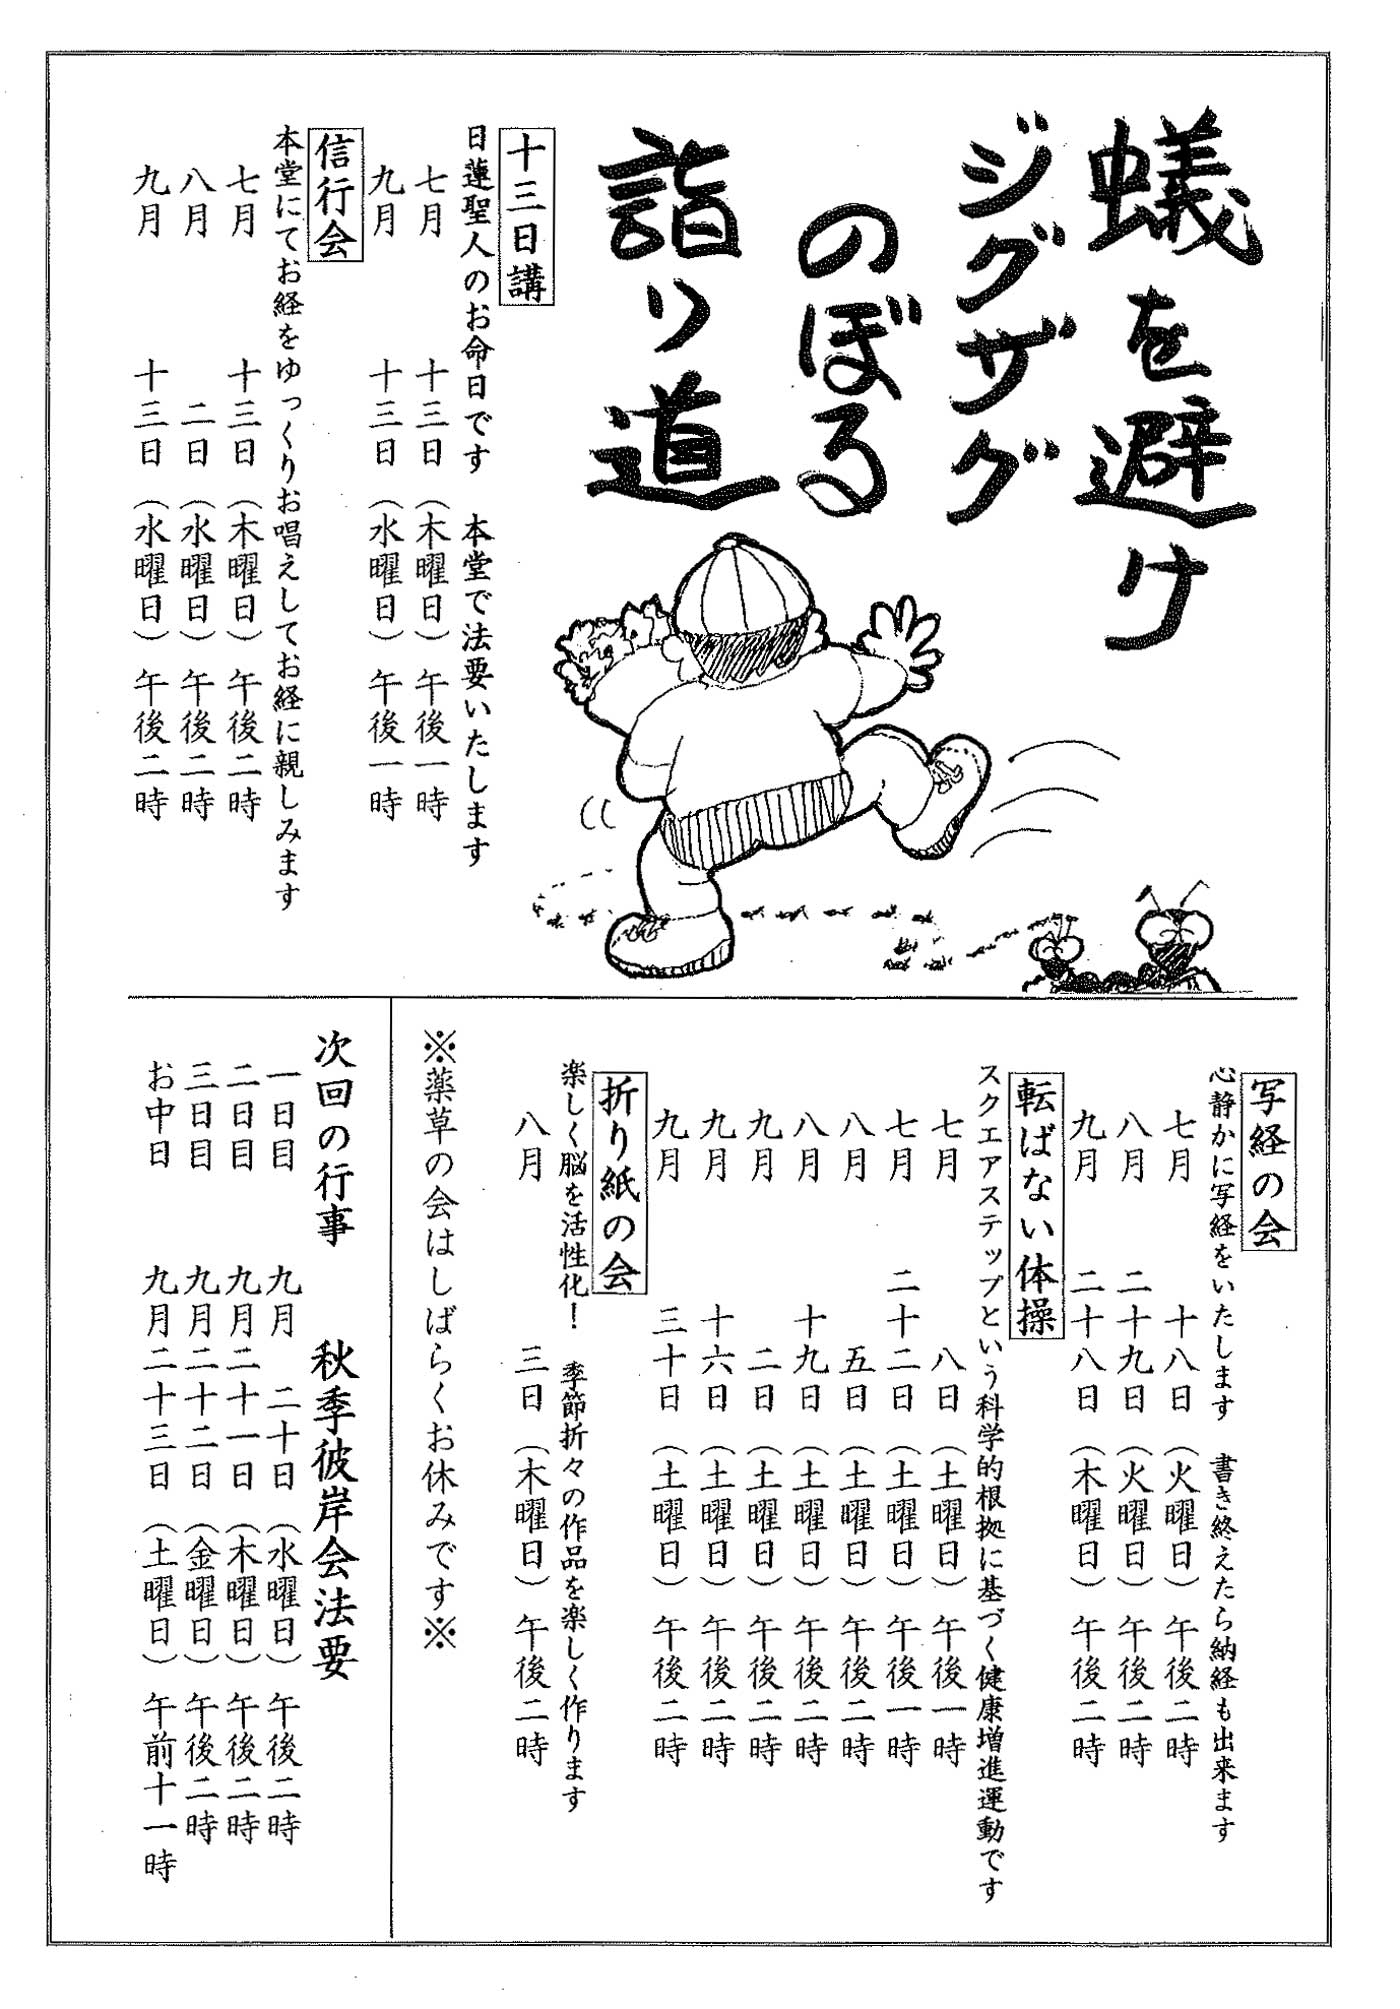 蟻を避け
ジグザグ
のぼる
詣り道
十三日講
日蓮聖人のお命日です　本堂で法要いたします
七月　十三日（木曜日）午後一時
九月　十三日（水曜日）午後一時
信行会
本堂にてお経をゆっくりお唱えしてお経に親しみます
七月　十三日（木曜日）午後二時
八月　二日（水曜日）午後二時
九月　十三日（水曜日）午後二時
写経の会
心静かに写経をいたします　書き終えたら納経も出来ます
七月　十八日（火曜日）午後二時
八月　二十九日（火曜日）午後二時
九月　二十八日（木曜日）午後二時
転ばない体操
スクエアステップという科学的根拠に基づく健康増進運動です
七月　八日（土曜日）午後一時
七月　二十二日（土曜日）午後一時
八月　五日（土曜日）午後二時
八月　十九日（土曜日）午後二時
九月　二日（土曜日）午後二時
九月　十六日（土曜日）午後二時
九月　三十日（土曜日）午後二時
折り紙の会
楽しく脳を活性化！　季節折々の作品を楽しく作ります
八月　三日（木曜日）午後二時
※薬草の会はしばらくお休みです※
次回の行事　秋季彼岸会法要
一日目　九月　二十日（水曜日）午後二時
二日目　九月二十一日（木曜日）午後二時
三日目　九月二十二日（金曜日）午後二時
お中日　九月二十三日（土曜日）午前十一時